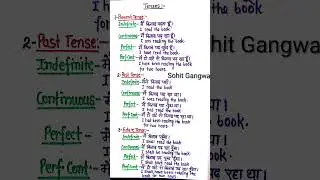 Tenses:-
1- Present Tense:-
Indefinite:- मैं किताब पढ़ता हूँ।
I read the book.
Continuous:- मैं किताब पढ़ रहा हूँ।
I am reading the book.
Perfect:- मैं किताब पढ़ चुका हूँ।
I have read the book.
Perf Cont:- मैं दो घंटे से किताब पढ़ रहा हूँ।
I have been reading the book
for two hours.
2- Past Tense:-
Indefinite:- मैंने किताब पढ़ी।
I read the book.
Continuous:- मैं किताब पढ़ रहा था।
I was reading the book.
Perfect:-
I had read the book.
Perf Cont:- मैं दो घंटे से किताब पढ़ रहा था।
I had been reading the book
for two hours.
3- Future Tense:-
Indefinite:- मैं किताब पढूँगा।
I shall read the book.
Continuous:-
I shall be reading the book.
Perfect:-
I shall have read the book.
Perf Cont:-
I shall have been reading the
book for two hours.
2-Past Tense:-
Indefinite:-
Continuous:-
Perfect:-
Perf Con
Sohit Gangwa
book.
रहा था।